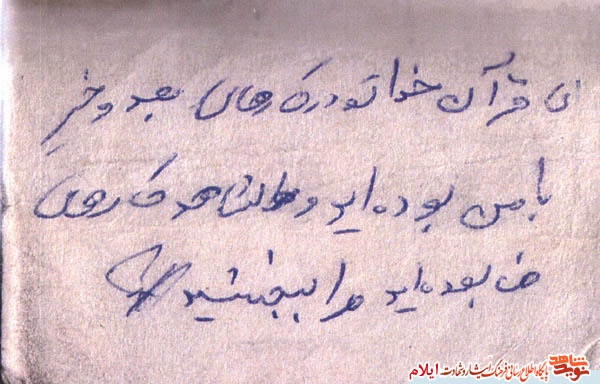 ای قرآن خدا تو در کارهای بعد و خیر
با من بوده اید و شاهد کارهای
من بوده اید مرا ببخشید
نوید شاهد
پایگاه اطلاع رسانی فرهنگ ایثار و شهادت ایلام